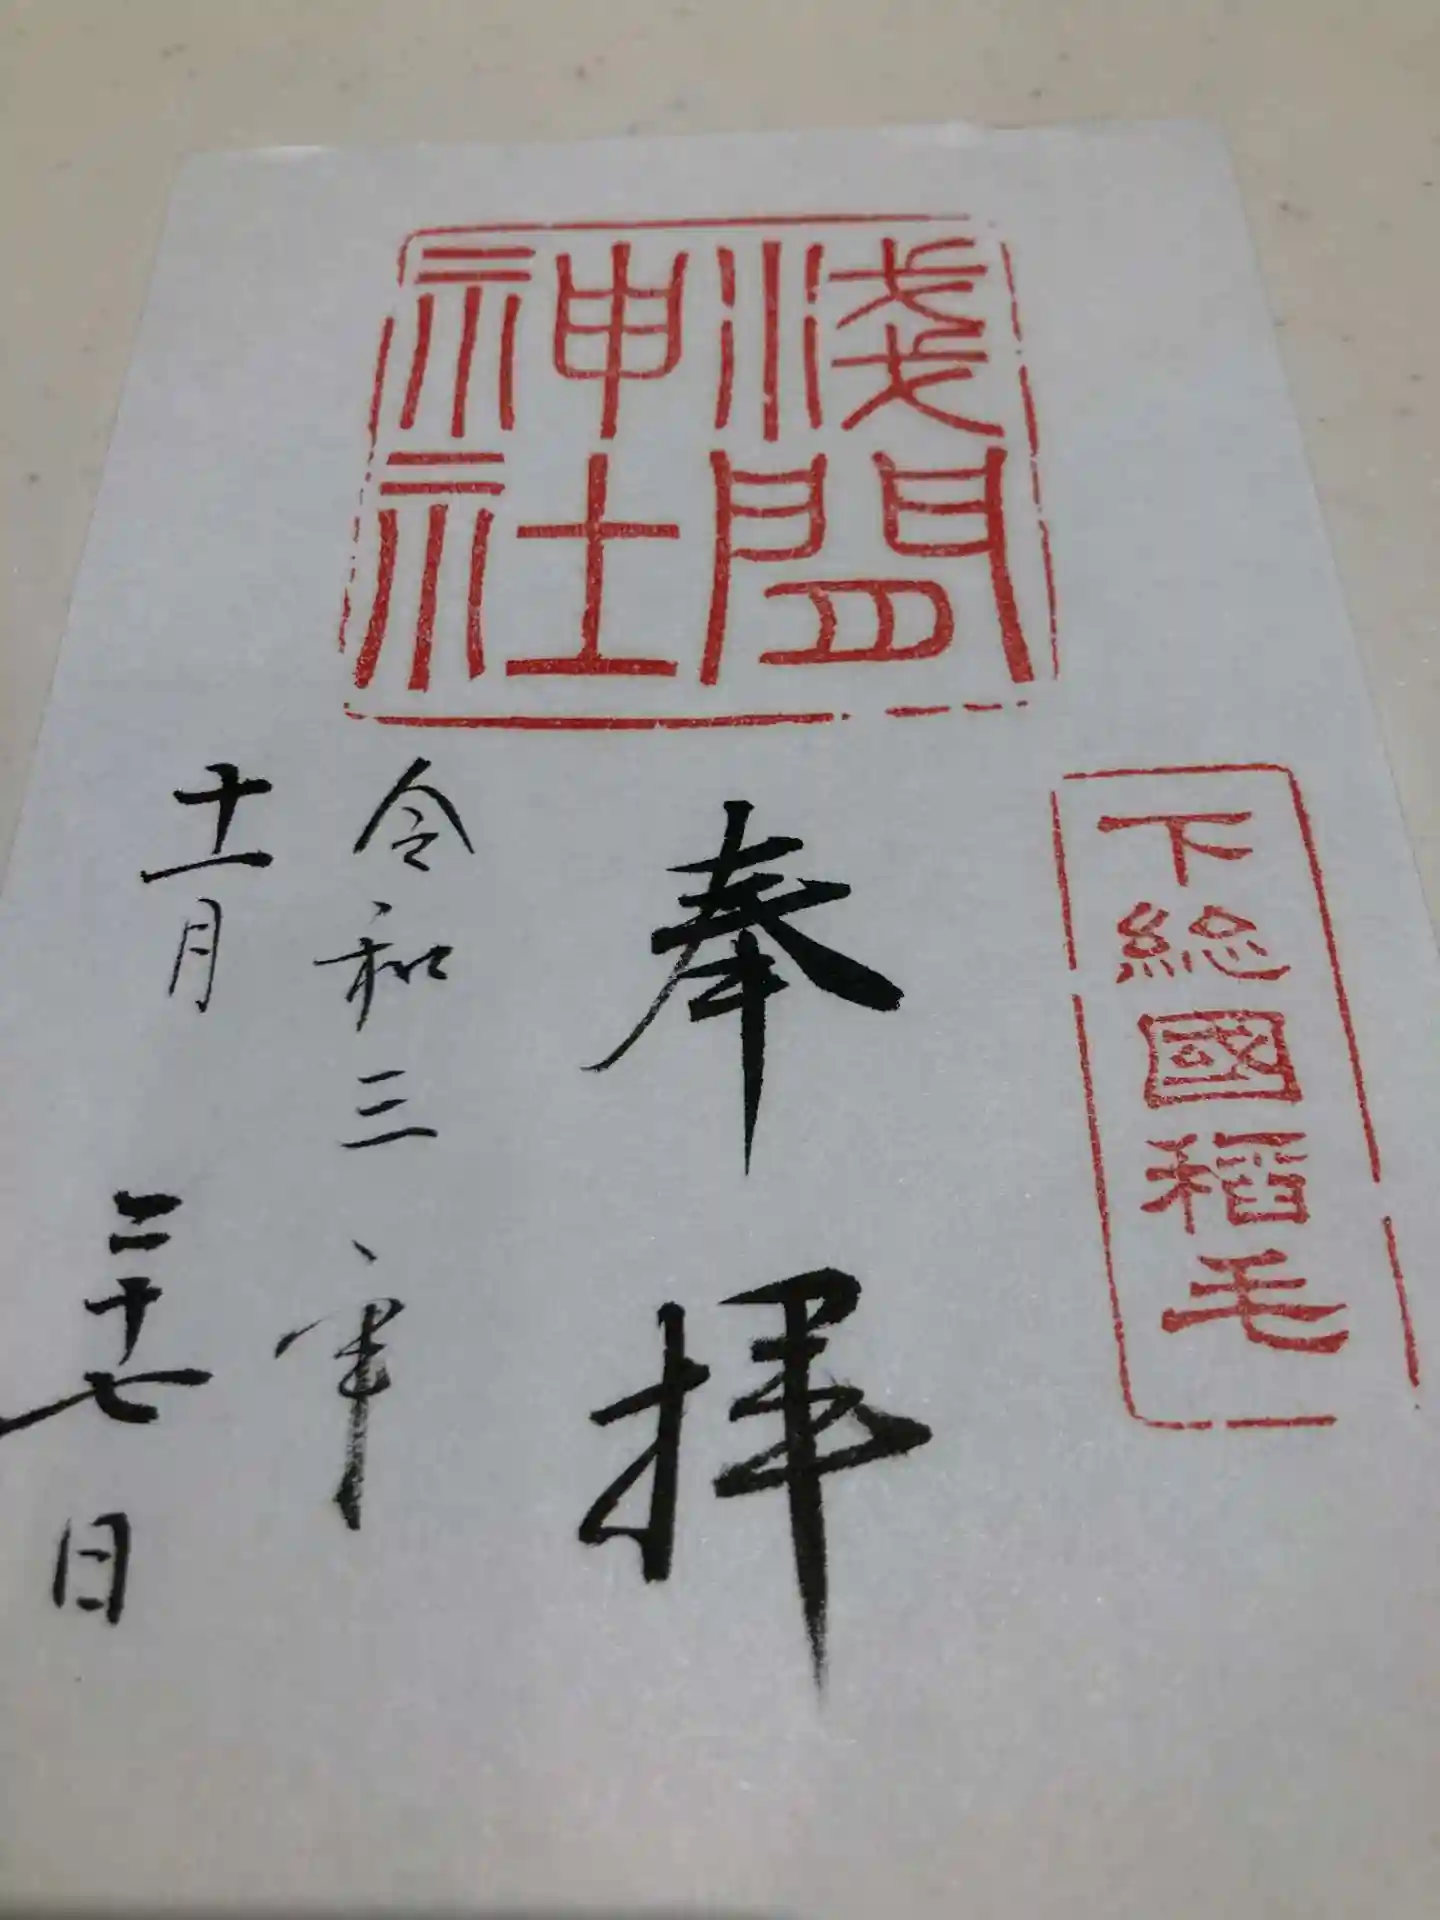 淺間神社
下総國稲毛
奉拝
令和三年
十一月二十七日